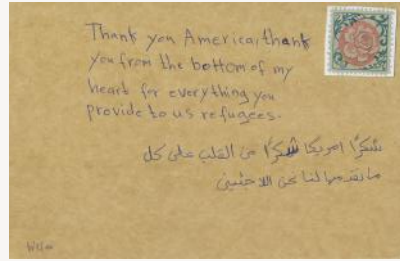 Thank you America, thank
you from the bottom of my
heart for everything you
provide to us refugees.
شكرًا امريكا شكرًا من القلب على كل
ما تقدموا لنا نحن الاجئين